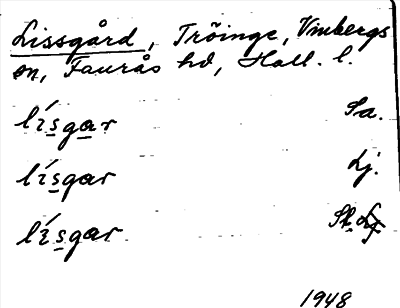 Lissgård, Tröinge, Vinbergs
sn, Faurås hd, Hall. l.
lísgar Sa.
lísgar Lj.
lísgar St. Lf
1948